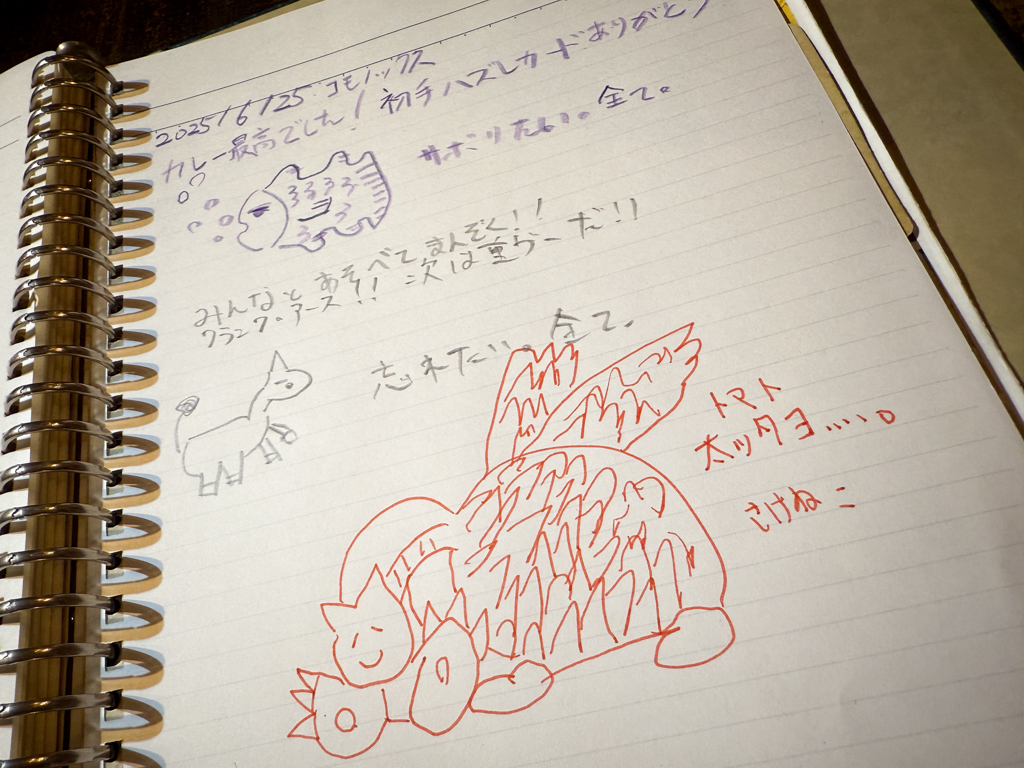 2025/6/25 コモノックス
カレー最高でした! 初手ハズレカードありがとう
サボりたい。全て。
みんなとあそべてまんぞく!!
クランク・アース!! 次は重ゲーだ!!
忘れたい。全て。
トマト
太ッタヨ....。
さけねこ